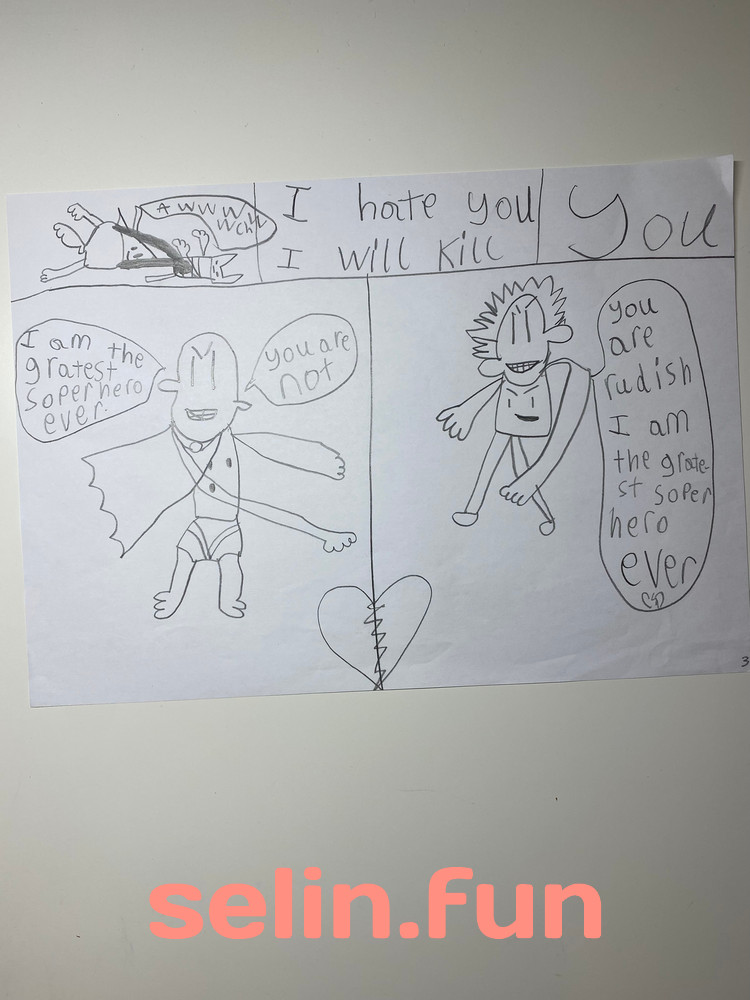 AWWWW
WCHH
I hate you
I will kill
you
I am the
gratest
soperhero
ever.
you are
not
you
are
rudish
I am
the grate-
st soper
hero
ever
3
selin.fun